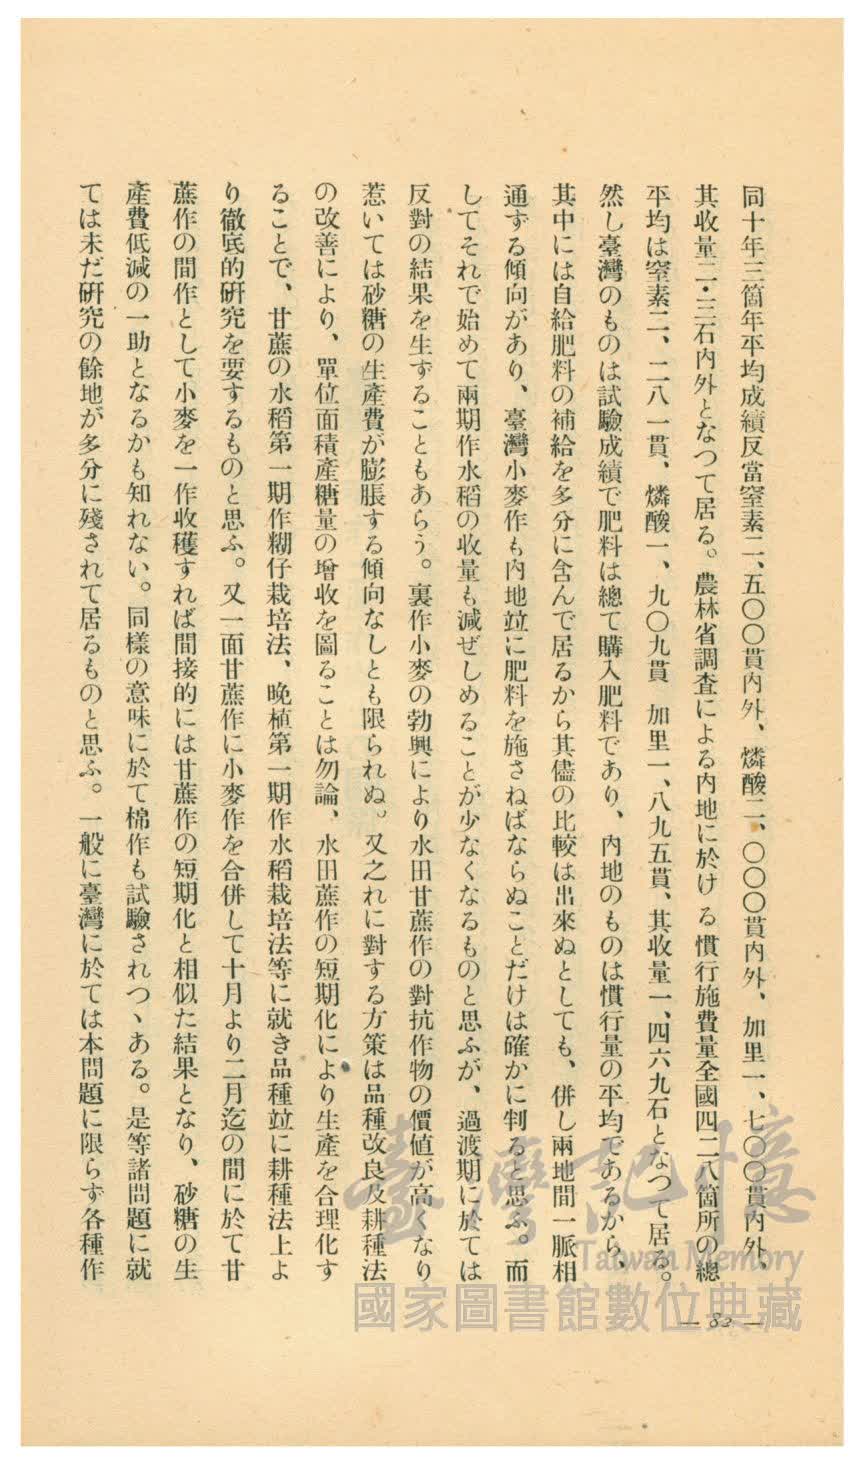 同十年三箇年平均成績反當窒素二、五〇〇貫内外、燐酸二、〇〇〇貫内外、加里一、七〇〇貫内外、
其收量二・三石内外となつて居る。農林省調査による内地に於ける慣行施費量全國四二八箇所の總
平均は窒素二、二八一貫、燐酸一、九〇九貫　加里一、八九五貫、其收量一、四六九石となつて居る。
然し臺灣のものは試驗成績で肥料は總て購入肥料であり、内地のものは慣行量の平均であるから、
其中には自給肥料の補給を多分に含んで居るから其儘の比較は出來ぬとしても、併し兩地間一脈相
通ずる傾向があり、臺灣小麥作も内地竝に肥料を施さねばならぬことだけは確かに判ると思ふ。而
してそれで始めて兩期作水稻の收量も減ぜしめることが少なくなるものと思ふが、過渡期に於ては
反對の結果を生ずることもあらう。裏作小麥の勃興により水田甘蔗作の對抗作物の價値が高くなり
惹いては砂糖の生產費が膨脹する傾向なしとも限られぬ。又之れに對する方策は品種改良及耕種法
の改善により、單位面積產糖量の增收を圖ることは勿論、水田蔗作の短期化により生產を合理化す
ることで、甘蔗の水稻第一期作糊仔栽培法、晩植第一期作水稻栽培法等に就き品種竝に耕種法上よ
り徹底的研究を要するものと思ふ。又一面甘蔗作に小麥作を合併して十月より二月迄の間に於て甘
蔗作の間作として小麥を一作收穫すれば間接的には甘蔗作の短期化と相似た結果となり、砂糖の生
產費低減の一助となるかも知れない。同樣の意味に於て棉作も試驗されつゝある。是等諸問題に就
ては未だ研究の餘地が多分に殘されて居るものと思ふ。一般に臺灣に於ては本問題に限らず各種作
— 82 —
臺灣記憶
Taiwan Memory
國家圖書館數位典藏